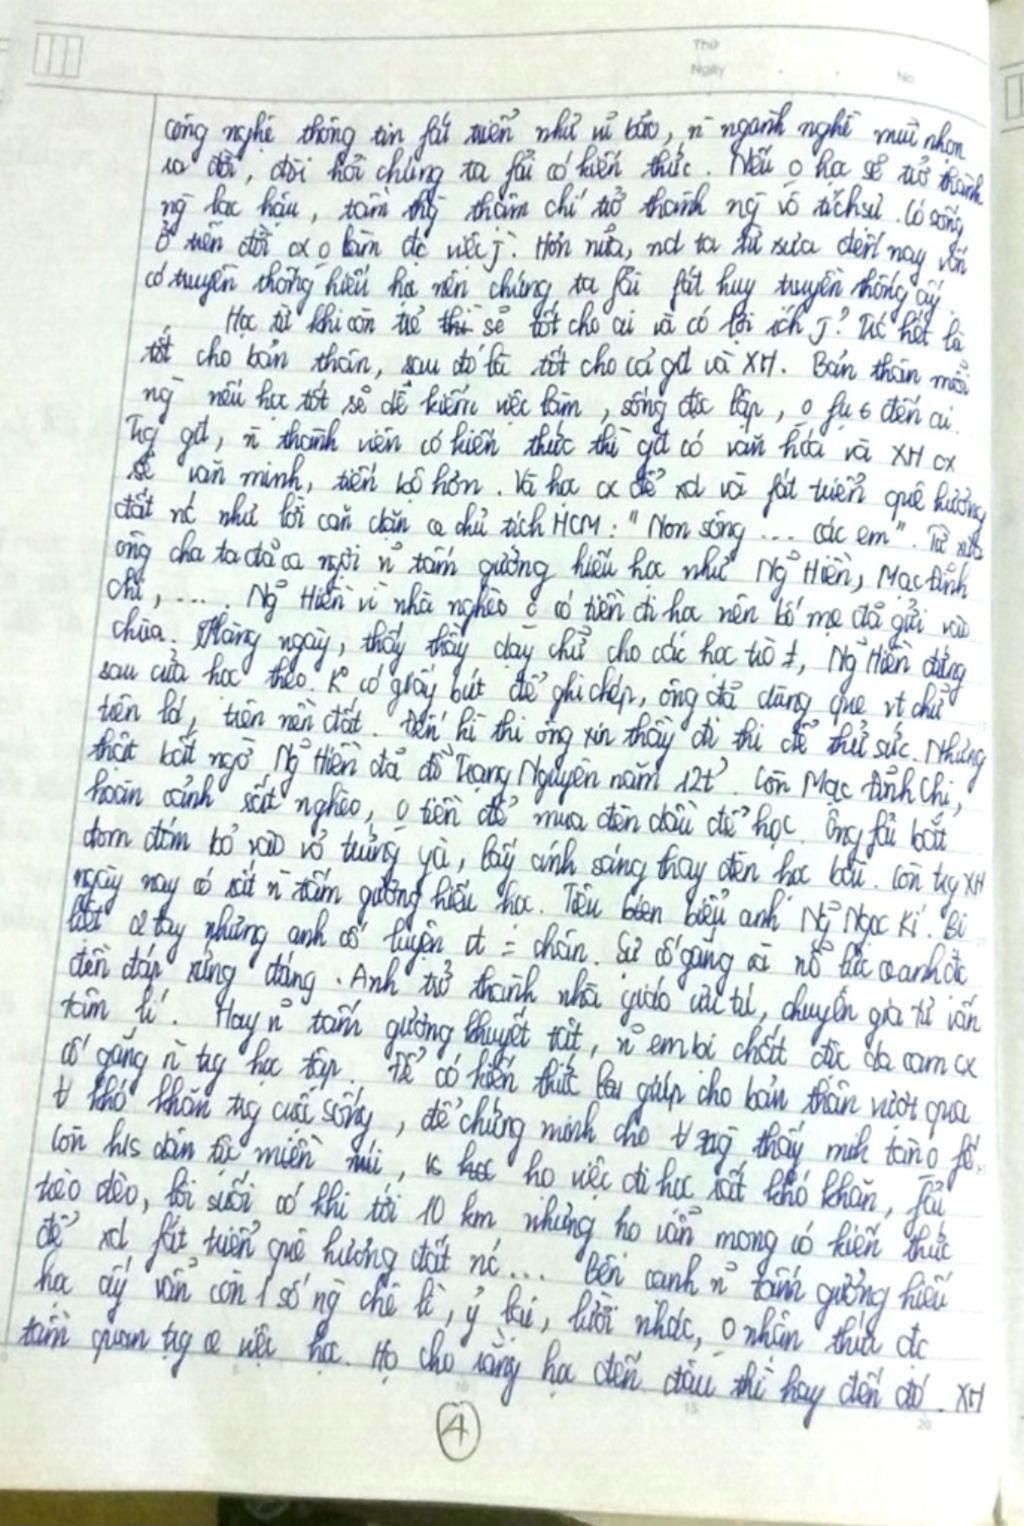 Thứ
Ngày No
công nghệ thông tin fát triển như vũ bão, n~ ngành nghề mũi nhọn
ra đời, đòi hỏi chúng ta fải có kiến thức. Nếu 0 học sẽ trở thành
ng` lạc hậu, tầm thg` thậm chí trở thành ng` vô tích sự. Có sống
ở trên đời cx 0 làm đc việc j`. Hơn nữa, nd ta từ xưa đến nay vốn
có truyền thống hiếu học nên chúng ta fải fát huy truyền thống ấy.
Học từ khi còn trẻ thì sẽ tốt cho ai và có lợi ích j`? Trc hết là
tốt cho bản thân, sau đó là tốt cho cả gđ và XH. Bản thân mỗi
ng` nếu học tốt sẽ dễ kiếm việc làm, sống độc lập, 0 fụ 6 đến ai.
Trg gđ, n` thành viên có kiến thức thì gđ có văn hóa và XH cx
sẽ văn minh, tiến bộ hơn. Và học cx để xd và fát triển quê hương
đất nc như lời căn dặn của chủ tịch HCM: "Non sông ... các em". Từ xưa
ông cha ta đã ca ngợi n~ tấm gương hiếu học như Ng~ Hiền, Mạc Đĩnh
Chi, .... Ng~ Hiền vì nhà nghèo 0 có tiền đi học nên bố mẹ đã gửi vào
chùa. Hàng ngày, thấy thầy dạy chữ cho các học trò ≠, Ng~ Hiền đứng
sau cửa học theo. K° có giấy bút để ghi chép, ông đã dùng que vt chữ
trên lá, trên nền đất. Đến kì thi ông xin thầy đi thi để thử sức. Nhưng
thật bất ngờ Ng~ Hiền đã đỗ Trạng Nguyên năm 12t'. Còn Mạc Đĩnh Chi,
hoàn cảnh rất nghèo, 0 tiền để mua đèn dầu để học. Ông fải bắt
đom đóm bỏ vào vỏ trứng gà, lấy ánh sáng thay đèn học bài. Còn trg XH
ngày nay có rất n` tấm gương hiếu học. Tiêu biểu anh Ng~ Ngọc Kí. Bị
liệt 2 tay nhưng anh cố luyện vt = chân. Sự cố gắng và nỗ lực của anh đc
đền đáp xứng đáng. Anh trở thành nhà giáo ưu tú, chuyên gia tư vấn
tâm lí. Hay n~ tấm gương khuyết tật, n~ em bị chất độc da cam cx
cố gắng n` trg học tập. Để có kiến thức giúp cho bản thân vượt qua
∀ khó khăn trg cuộc sống, để chứng minh cho ∀ ng` thấy mình tàn 0 fế.
Còn h/s dân tộc miền núi, họ việc đi học rất khó khăn, fải
trèo đèo, lội suối có khi tới 10 km nhưng họ vẫn mong có kiến thức
để xd fát triển quê hương đất nc... Bên cạnh n~ tấm gương hiếu
học ấy vẫn còn 1 số ng` chê lì, ỷ lại, lười nhác, 0 nhận thức đc
tầm quan trg của việc học. Họ cho rằng học đến đâu thì hay đến đó. XH
4